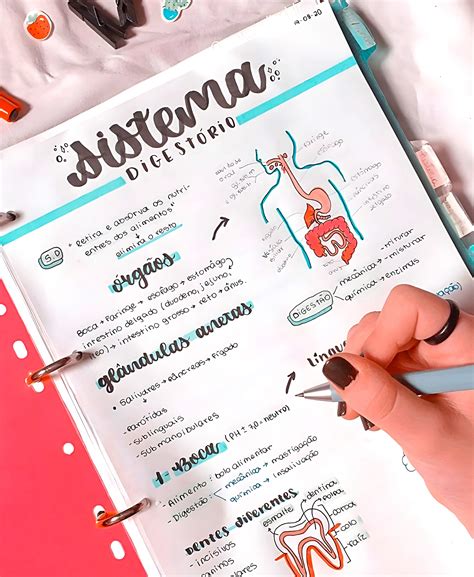 14.08.20
sistema
DIGESTÓRIO
S.D
• Retira e absorve os nutri-
entes dos alimentos*
elimina o resto
órgãos
Boca → Faringe → esôfago → estômago →
intestino delgado (duodeno, jejuno,
íleo) → intestino grosso → reto → ânus.
Faringe
esôfago
Estômago
intestino
delgado
DIGESTÃO
mecânica → triturar
→ misturar
química → enzimas
glândulas anexas
• Salivares → pâncreas → Fígado
- Parótidas
- sublinguais
- submandibulares
1- Boca (PH ± 7,0 = neutro)
- Alimento: bolo alimentar
- Digestão: mecânica → mastigação
química → insalivação
Dentes diferentes
- incisivos
- caninos
esmalte
dentina
polpa
coroa
colo
raiz